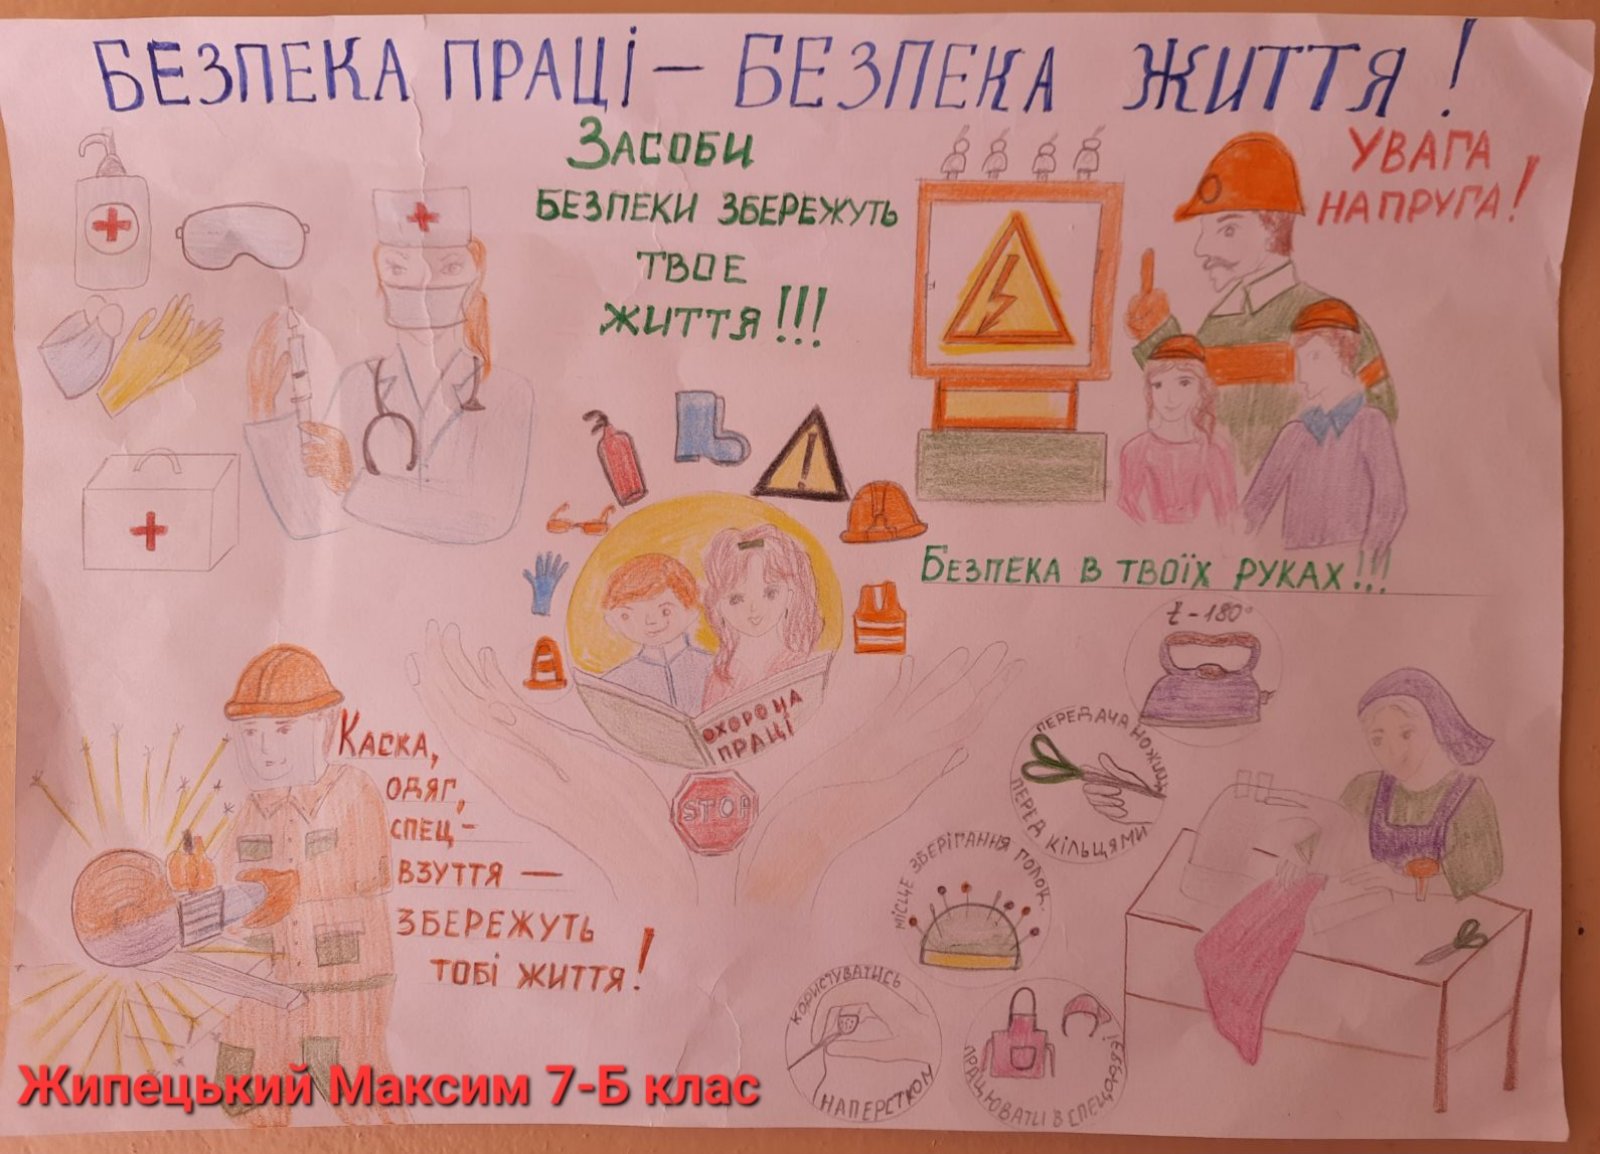 БЕЗПЕКА ПРАЦІ – БЕЗПЕКА ЖИТТЯ!
ЗАСОБИ
БЕЗПЕКИ ЗБЕРЕЖУТЬ
ТВОЕ
ЖИТТЯ!!!
УВАГА
НАПРУГА!
БЕЗПЕКА В ТВОЇХ РУКАХ!!!
ОХОРОНА
ПРАЦІ
STOP
КАСКА,
ОДЯГ,
СПЕЦ-
ВЗУТТЯ –
ЗБЕРЕЖУТЬ
ТОБІ ЖИТТЯ!
t - 180°
ПЕРЕДАЧА НОЖИЦЬ
ПЕРЕД КІЛЬЦЯМИ
МІСЦЕ ЗБЕРІГАННЯ ГОЛОК.
КОРИСТУВАТИСЬ
НАПЕРСТКОМ
ПРАЦЮВАТИ В СПЕЦОДЯЗІ!
Жипецький Максим 7-Б клас